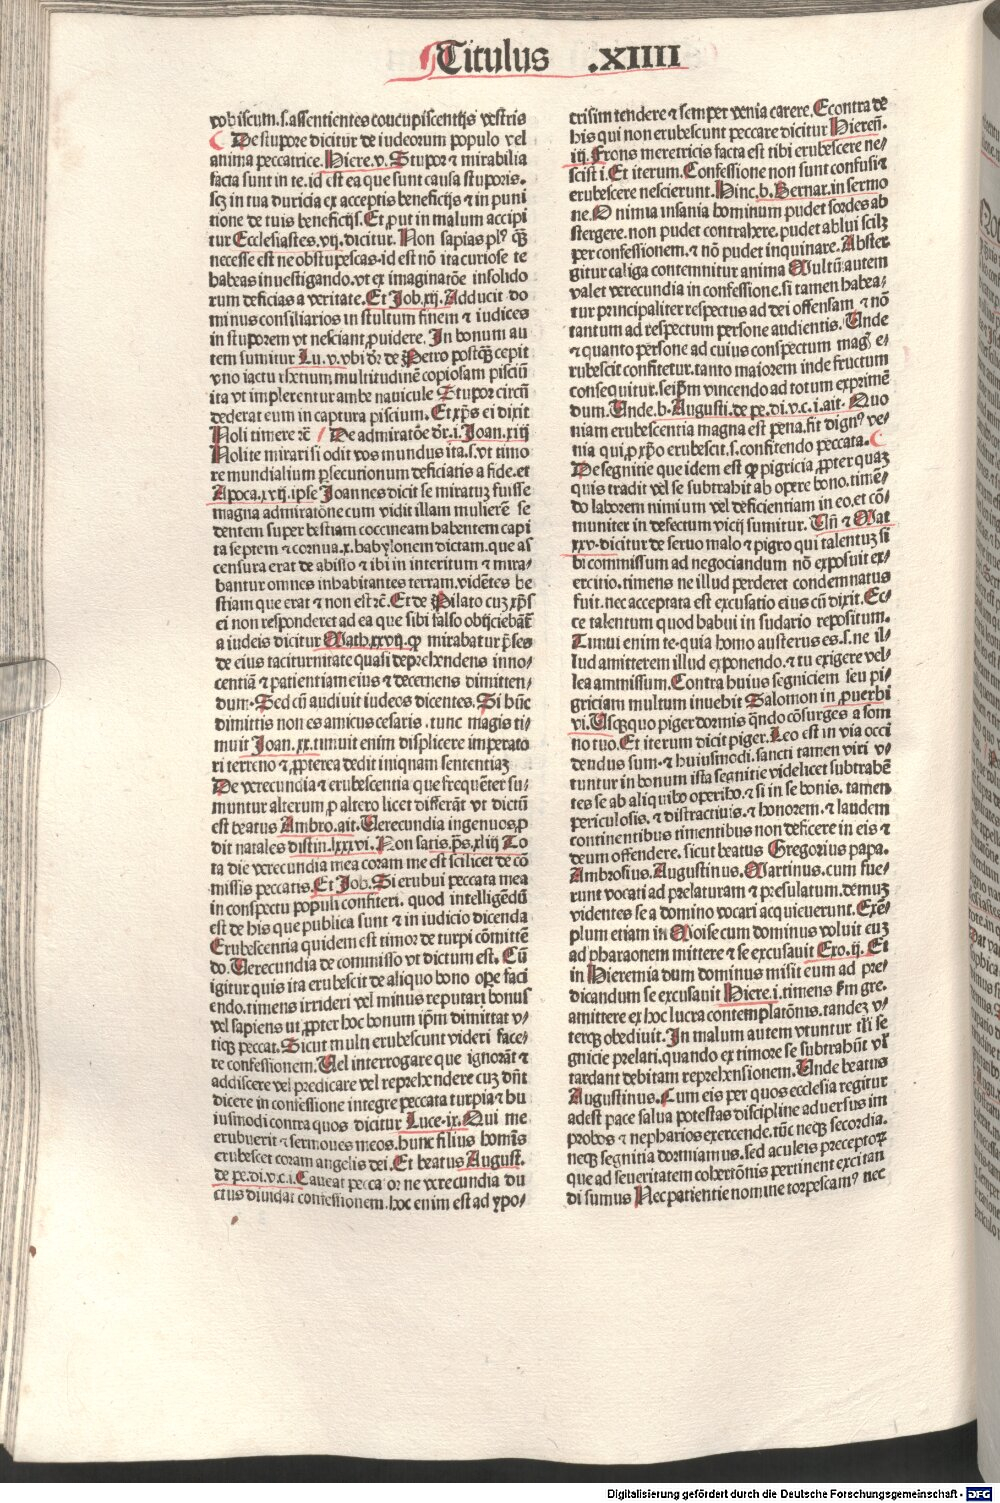 Titulus .XIIII
vobiscum.s.assentientes concupiscentijs vestris
De stupore dicitur de iudeorum populo vel
anima peccatrice. Hiere.v. Stupor ⁊ mirabilia
facta sunt in te.id est ea que sunt causa stuporis.
scꝫ in tua duricia ex acceptis beneficijs ⁊ in puni
tione de tuis beneficijs. Et ꝓut in malum accipi
tur Ecclesiastes.vij.dicitur. Non sapias plꝰ qȝ
necesse est ne obstupescas.id est nō ita curiose te
habeas inuestigando.vt ex imaginatōe insolido
rum deficias a veritate. Et Job.xij. Adducit do
minus consiliarios in stultum finem ⁊ iudices
in stuporem vt nesciant ꝓuidere. In bonum au
tem sumitur Lu.v.vbi dr̄ de Petro postqȝ cepit
vno iactu rhetium multitudinē copiosam pisciū
ita vt implerentur ambe nauicule Stupor circū
dederat eum in captura piscium. Et xp̄s ei dixit
Noli timere ⁊c̄ De admiratōe dr̄.i. Joan.xiij
Nolite mirari si odit vos mundus ita.s.vt timo
re mundialium ꝑsecutionum deficiatis a fide.et
Apoca.xvij.ipse Joannes dicit se miratuꝫ fuisse
magna admiratōne cum vidit illam mulierē se
dentem super bestiam coccineam habentem capi
ta septem ⁊ cornua.x.babylonem dictam.que as
censura erat de abisso ⁊ ibi in interitum ⁊ mira⸗
bantur omnes inhabitantes terram.vidētes be
stiam que erat ⁊ non est ⁊c̄. Et de Pilato cuꝫ xp̄s
ei non responderet ad ea que sibi falso obijciebāt̄
a iudeis dicitur Math.xxvij.ꝙ mirabatur p̄ses
de eius taciturnitate quasi deprehendens inno⸗
centiā ⁊ patientiam eius ⁊ decernens dimitten⸗
dum. Sed cū audiuit iudeos dicentes. Si hūc
dimittis non es amicus cesaris.tunc magis ti⸗
muit Joan.xx.timuit enim displicere imperato
ri terreno ⁊ ꝓpterea dedit iniquam sententiaꝫ
De verecundia ⁊ erubescentia que frequēter su⸗
muntur alterum ꝓ altero licet differāt vt dictū
est beatus Ambro.ait. Verecundia ingenuos ꝓ
dit natales distin.lxxxvi. Non satis.p̄s.xliij To
ta die verecundia mea coram me est scilicet de cō
missis peccatis. Et Job. Si erubui peccata mea
in conspectu populi confiteri. quod intelligēdū
est de his que publica sunt ⁊ in iudicio dicenda
Erubescentia quidem est timor de turpi cōmittē
do. Verecundia de commisso vt dictum est. Cū
igitur quis ita erubescit de aliquo bono oꝑe faci
endo.timens irrideri vel minus reputari bonus
vel sapiens ut ꝓpter hoc bonum ip̄m dimittat v⸗
tiqꝫ peccat. Sicut multi erubescunt videri face⸗
re confessionem. Vel interrogare que ignorāt ⁊
addiscere vel predicare vel reprehendere cuꝫ dn̄t
dicere in confessione integre peccata turpia ⁊ hu
iusmodi contra quos dicitur Luce.ix. Qui me
erubuerit ⁊ sermones meos.hunc filius homīs
erubescet coram angelis dei. Et beatus August.
de pe.di.v.c.i. Caueat pecca or ne verecundia du
ctus diuidat confessionem.hoc enim est ad ypo⸗
crisim tendere ⁊ semper venia carere. Econtra de
his qui non erubescunt peccare dicitur Hieren̄.
iij. Frons meretricis facta est tibi erubescere ne⸗
scisti. Et iterum. Confessione non sunt confusi ⁊
erubescere nescierunt. Hinc.b. Bernar.in sermo
ne. O nimia insania hominum pudet sordes ab
stergere.non pudet contrahere.pudet ablui scilꝫ
per confessionem.⁊ nō pudet inquinare. Abster
gitur caliga contemnitur anima Multū autem
valet verecundia in confessione.si tamen habea⸗
tur principaliter respectus ad dei offensam ⁊ nō
tantum ad respectum persone audientis. Unde
⁊ quanto persone ad cuius conspectum mag̃ e⸗
rubescit confitetur.tanto maiorem inde fructum
consequitur.seip̄m vincendo ad totum exprimē
dum. Unde.b. Augusti.de pe.di.v.c.i.ait. Quo
niam erubescentia magna est pena.fit dignꝰ ve⸗
nia qui ꝓ xp̄o erubescit.s.confitendo peccata.
De segnitie que idem est ꝙ pigricia ꝓpter quaꝫ
quis tradit vel se subtrahit ab opere bono.timē⸗
do laborem nimium vel deficientiam in eo.et cō⸗
muniter in defectum vicij sumitur. Un̄ ⁊ Mat
xxv.dicitur de seruo malo ⁊ pigro qui talentuꝫ si
bi commissum ad negociandum nō exposuit ex⸗
ercitio.timens ne illud perderet condemnatus
fuit.nec acceptata est excusatio eius cū dixit. Ec⸗
ce talentum quod habui in sudario repositum.
Timui enim te.quia homo austerus es.s.ne il⸗
lud amitterem illud exponendo.⁊ tu exigere vel⸗
lea ammissum. Contra huius segniciem seu pi⸗
griciam multum inuehit Salomon in ꝓuerbi
vi. Usqꝫquo piger dormis qn̄do cōsurges a som
no tuo. Et iterum dicit piger. Leo est in via occi
dendus sum.⁊ huiusmodi.sancti tamen viri v⸗
tuntur in bonum ista segnitie videlicet subtrahē
tes se ab aliquibꝰ operibꝰ.⁊ si in se bonis. tamen
periculosis.⁊ distractiuis.⁊ honorem.⁊ laudem
continentibus timentibus non deficere in eis ⁊
deum offendere.sicut beatus Gregorius papa.
Ambrosius. Augustinus. Martinus.cum fue⸗
runt vocati ad prelaturam ⁊ presulatum.demuꝫ
videntes se a domino vocari acquieuerunt. Exē⸗
plum etiam in Moise cum dominus voluit euꝫ
ad pharaonem mittere ⁊ se excusauit Exo.ij. Et
in Hieremia dum dominus misit eum ad pre⸗
dicandum se excusauit Hiere.i.timens fm gre.
amittere ex hoc lucra contemplatōnis.tandeꝫ v⸗
terqꝫ obediuit. In malum autem vtuntur isti se
gnicie prelati.quando ex timore se subtrahūt vl̄
tardant debitam reprehensionem. Unde beatus
Augustinus. Cum eis per quos ecclesia regitur
adest pace salua potestas discipline aduersus im
probos ⁊ nepharios exercende.tūc neqꝫ secordia.
neqꝫ segnitia dormiamus.sed aculeis preceptoꝝ
que ad seueritatem cohertōnis pertinent exci tan
di sumus Nec patientie nomine torpescamꝰ nec
Digitalisierung gefördert durch die Deutsche Forschungsgemeinschaft - DFG